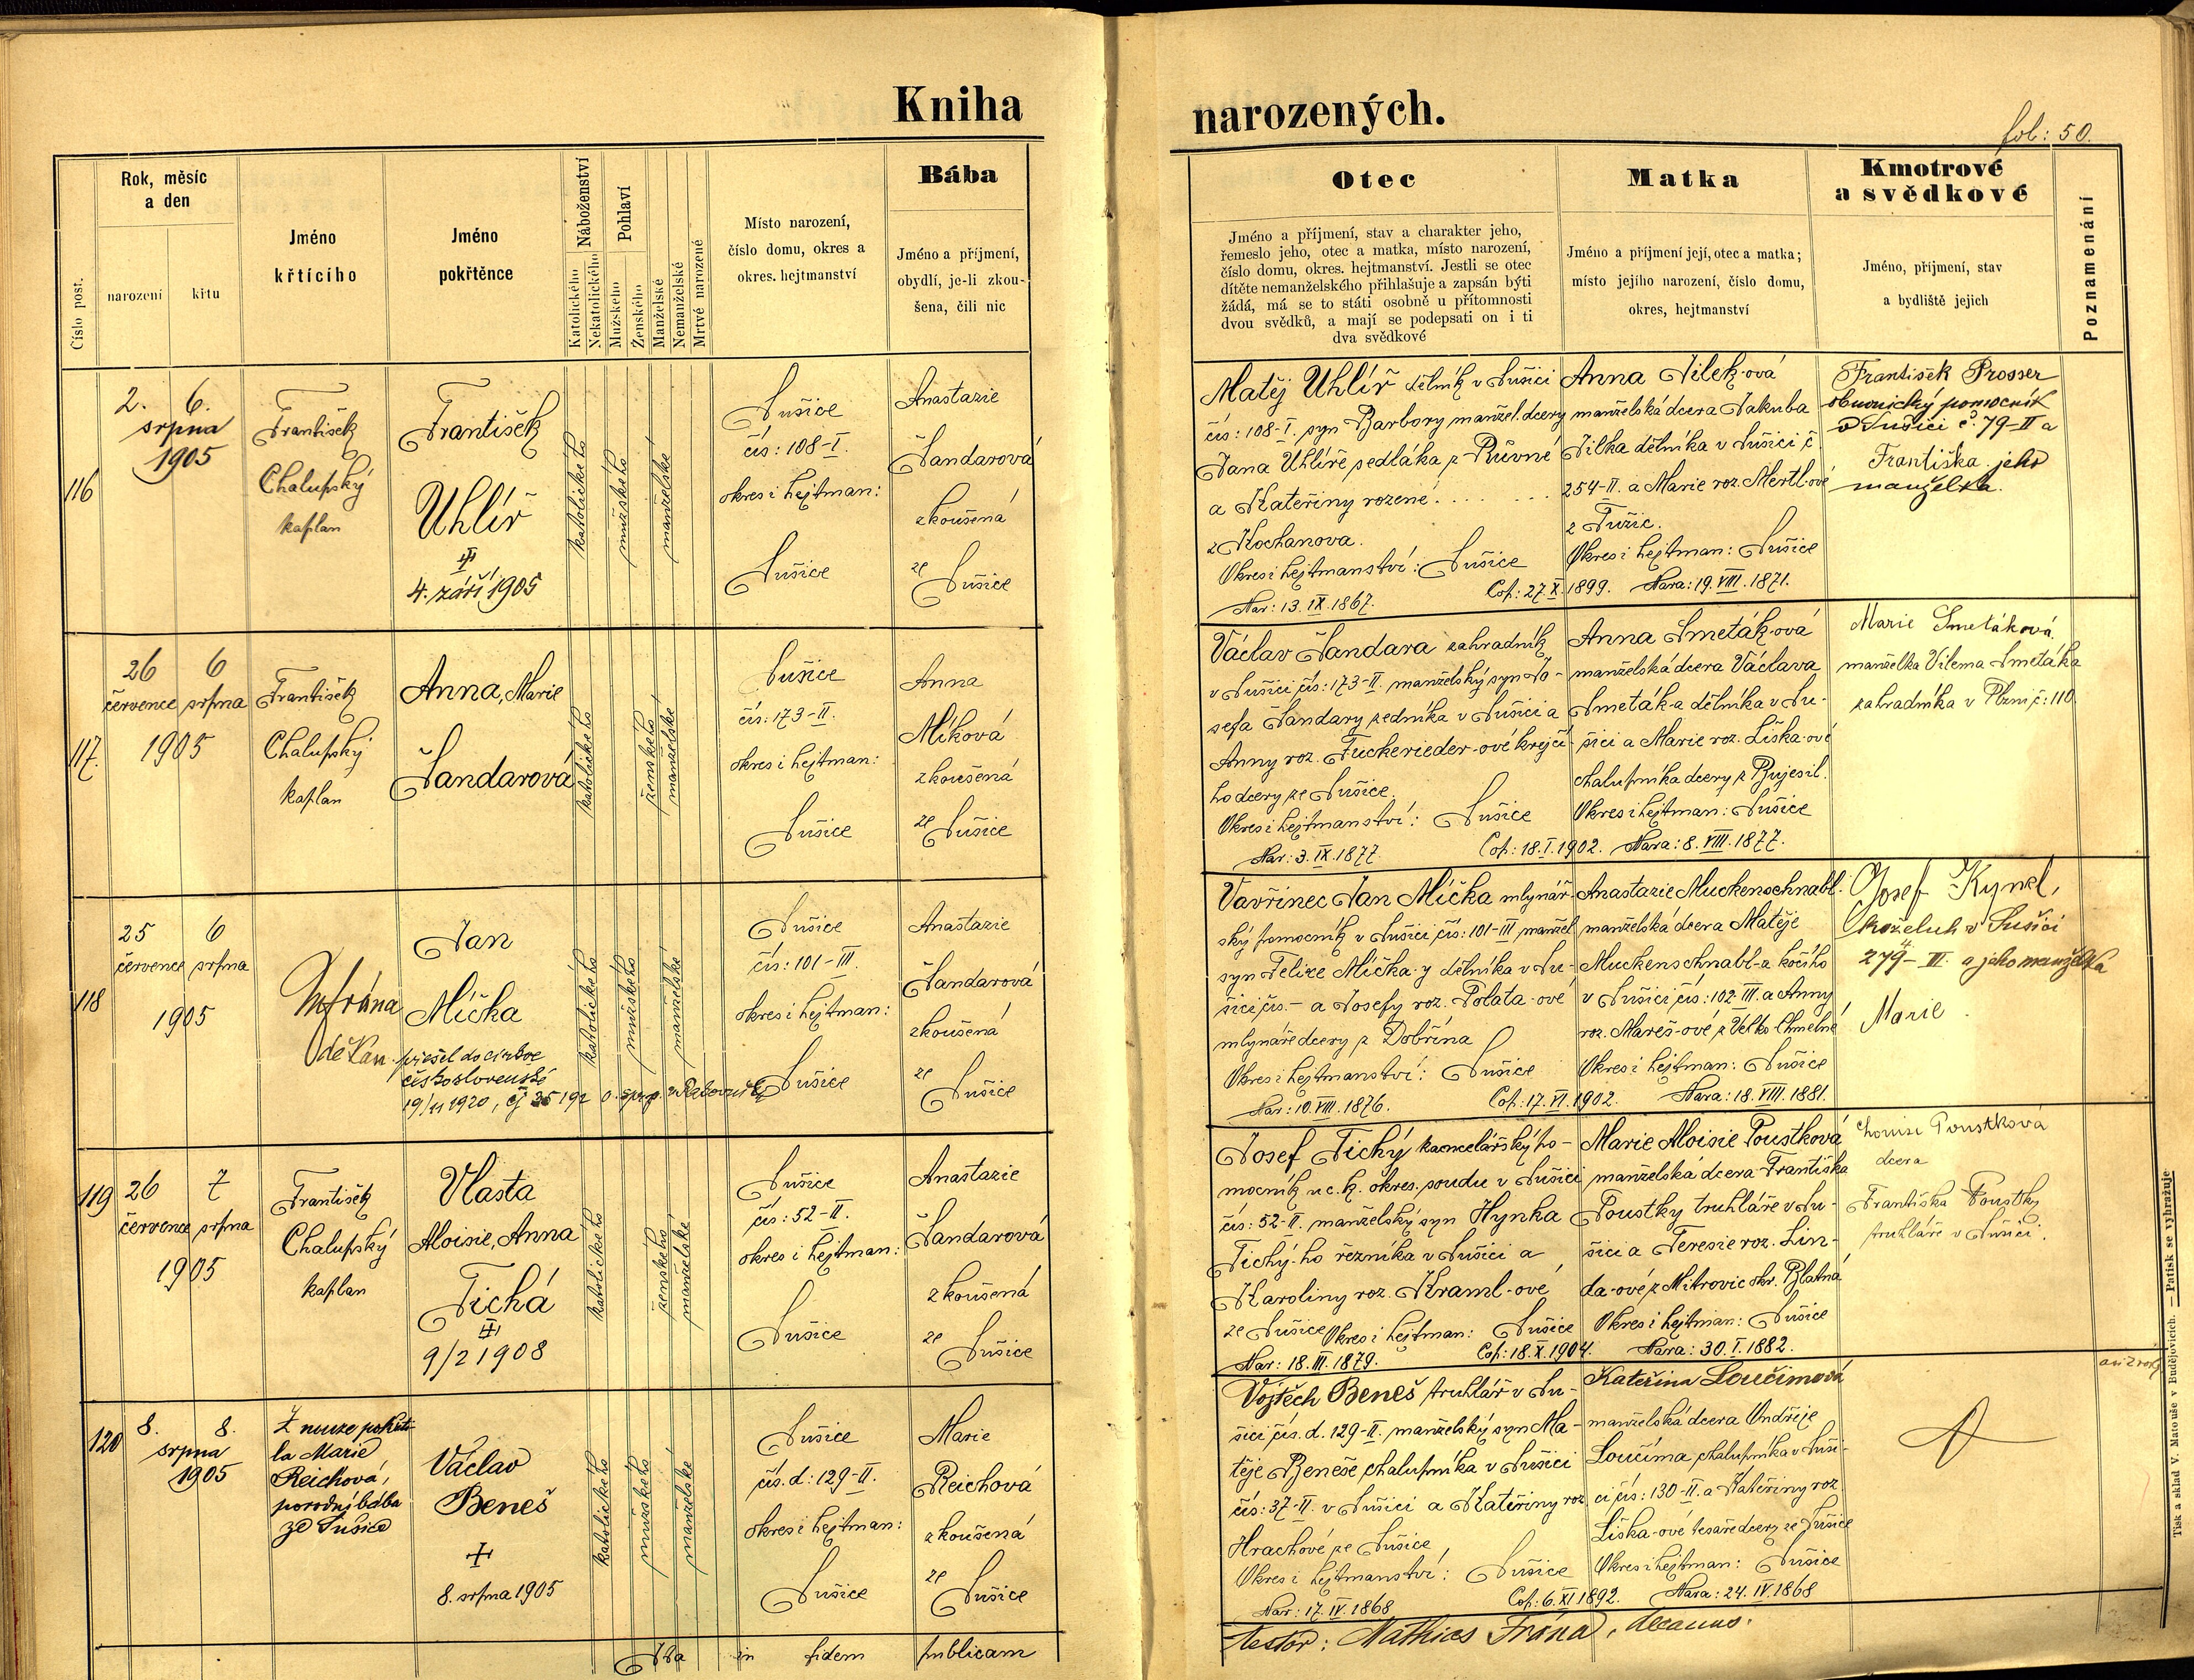 Kniha
narozených.
fol: 50.
Číslo post.
Rok, měsíc
a den
narození
křtu
Jméno
křtícího
Jméno
pokřtěnce
Náboženství
Katolického
Nekatolického
Pohlaví
Mužského
Ženského
Manželské
Nemanželské
Mrtvě narozené
Místo narození,
číslo domu, okres a
okres. hejtmanství
Bába
Jméno a příjmení,
obydlí, je-li zkou-
šena, čili nic
Otec
Jméno a příjmení, stav a charakter jeho,
řemeslo jeho, otec a matka, místo narození,
číslo domu, okres. hejtmanství. Jestli se otec
dítěte nemanželského přihlašuje a zapsán býti
žádá, má se to státi osobně u přítomnosti
dvou svědků, a mají se podepsati on i ti
dva svědkové
Matka
Jméno a příjmení její, otec a matka;
místo jejího narození, číslo domu,
okres, hejtmanství
Kmotrové
a svědkové
Jméno, příjmení, stav
a bydliště jejich
Poznamenání
116
2. 6.
srpna
1905
František
Chalupský
kaplan
František
Uhlíř
4. září 1905
katolického
mužského
manželské
Sušice
čís: 108-I.
okres i hejtman:
Sušice
Anastazie
Šandarová
zkoušená
ze
Sušice
Matěj Uhlíř dělník v Sušici
čís: 108-I. syn Barbory manžel. dcery
Jana Uhlíře sedláka z Růvné
a Kateřiny rozené . . . . . . .
z Kochanova.
Okres i hejtmanství: Sušice
Nar: 13. IX. 1867.
Cop: 27. X. 1899.
Anna Jílek-ová
manželská dcera Jakuba
Jílka dělníka v Sušici č.
254-II. a Marie roz. Mertl-ové
z Tužic.
Okres i hejtman: Sušice
Nara: 19. VIII. 1871.
František Prosser
obuvnický pomocník
v Sušici č. 79-II a
Františka jeho
manželka.
117.
26 6
července srpna
1905
František
Chalupský
kaplan
Anna, Marie
Šandarová
katolického
ženského
manželské
Sušice
čís: 173-II.
okres i hejtman:
Sušice
Anna
Míková
zkoušená
ze Sušice
Václav Šandara zahradník
v Sušici čís: 173-II. manželský syn Jo-
sefa Šandary zedníka v Sušici a
Anny roz. Fuckerieder-ové krejčí-
ho dcery ze Sušice.
Okres i hejtmanství: Sušice
Nar: 3. IX. 1877.
Cop: 18. I. 1902.
Anna Smeták-ová
manželská dcera Václava
Smeták-a dělníka v Su-
šici a Marie roz. Liška-ové
chalupníka dcery z Bujesil.
Okres i hejtman: Sušice
Nara: 8. VIII. 1877.
Marie Smetáková
manželka Vilema Smetáka
zahradníka v Plzni č: 110.
118
25 6
července srpna
1905
děkan.
Jan
Míčka
přešel do církve
československé
19/11 1920, čj 35 192
katolického
mužského
manželské
Sušice
čís: 101-III.
okres i hejtman:
Sušice
Anastazie
Šandarová
zkoušená
ze
Sušice
Vavřinec Jan Míčka mlynář-
ský pomocník v Sušici čís: 101-III manžel
syn Felixe Míčka-y dělníka v Su-
šici čís. - a Josefy roz. Polata-ové
mlynáře dcery z Dobřína
Okres i hejtmanství: Sušice
Nar: 10. VIII. 1876.
Cop: 17. VI. 1902.
Anastazie Muckenschnabl.
manželská dcera Matěje
Muckenschnabl-a kočího
v Sušici čís: 102-III. a Anny
roz. Mareš-ové z Velko Chmelné
Okres i hejtman: Sušice
Nara: 18. VIII. 1881.
Josef Kynel,
koželuh v Sušici
279-III. a jeho manželka
Marie
119
26 7
července srpna
1905
František
Chalupský
kaplan
Vlasta
Aloisie, Anna
Tichá
9/2 1908
katolického
ženského
manželské
Sušice
čís: 52-II.
okres i hejtman:
Sušice
Anastazie
Šandarová
zkoušená
ze
Sušice
Josef Tichý kancelářský po-
mocník u c. k. okres. soudu v Sušici
čís: 52-II. manželský syn Hynka
Tichý-ho řezníka v Sušici a
Karoliny roz. Kraml-ové
ze Sušice Okres i hejtman: Sušice
Nar: 18. III. 1879.
Cop: 18. X. 1904.
Marie Aloisie Poustková
manželská dcera Františka
Poustky truhláře v Su-
šici a Teresie roz. Lin-
da-ové z Mitrovic okr. Blatná
Okres i hejtman: Sušice
Nara: 30. I. 1882.
Louisa Poustková
dcera
Františka Poustky
truhláře v Sušici.
120
8. 8.
srpna
1905
Z nouze pokřti-
la Marie
Reichová,
porodní bába
ze Sušice
Václav
Beneš
8. srpna 1905
katolického
mužského
manželské
Sušice
čís. d: 129-II.
okres i hejtman:
Sušice
Marie
Reichová
zkoušená
ze
Sušice
Vojtěch Beneš truhlář v Su-
šici čís. d. 129-II. manželský syn Ma-
těje Beneše chalupníka v Sušici
čís: 37-II. v Sušici a Kateřiny roz
Hrachové ze Sušice
Okres i hejtmanství: Sušice
Nar: 17. IV. 1868
Cop: 6. XI. 1892.
Kateřina Loučimová
manželská dcera Ondřeje
Loučíma chalupníka v Suši-
ci čís: 130-II. a Kateřiny roz
Liška-ové tesaře dcery ze Sušice
Okres i hejtman: Sušice
Nara: 24. IV. 1868
Ita in fidem publicam
testor: Mathias Frána, decanus.
Tisk a sklad V. Matouše v Budějovicích. — Patisk se vyhražuje